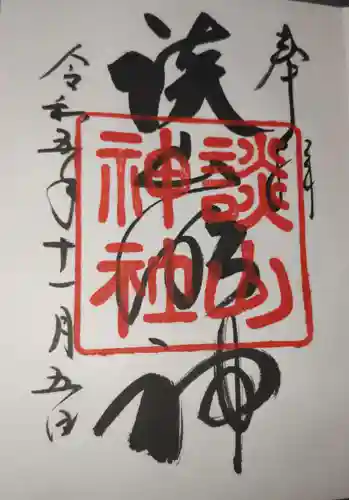 奉拝
談山明神
談山
神社
令和五年十一月五日